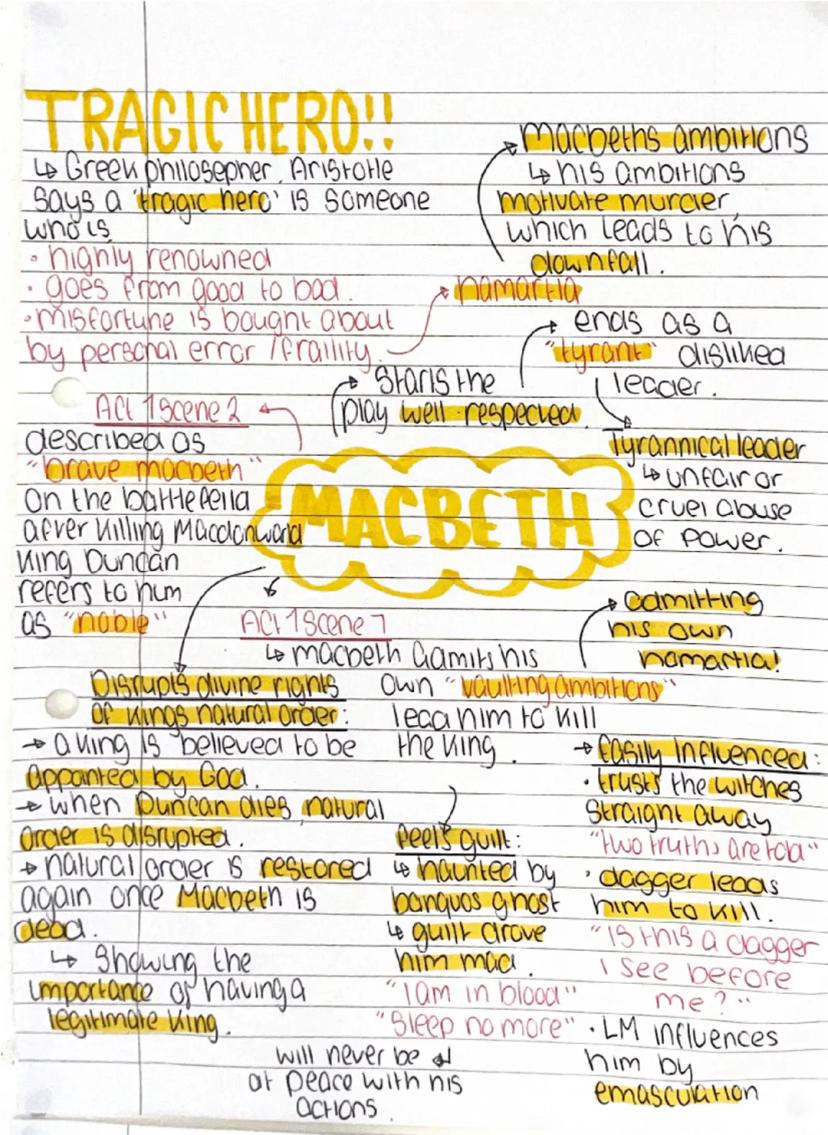 TRAGIC HERO!!
↳ Greek philosopher, Aristotle
says a 'tragic hero' is someone
who is
· highly renowned
· goes from good to bad.
· misfortune is bought about
by personal error / fraility.
hamartia
Macbeths ambitions
↳ his ambitions
motivate murder
which leads to his
downfall.
starts the
play well-respected.
ends as a
"tyrant" disliked
leader.
Tyrannical leader
↳ unfair or
cruel abuse
of power.
Act 1 Scene 2
described as
"brave macbeth"
on the battlefeild
after killing Macdonwald
King Duncan
refers to him
as "noble"
MACBETH
Act 1 Scene 7
↳ macbeth admits his
own "vaulting ambitions"
lead him to kill
the king.
admitting
his own
hamartia!
Disrupts divine rights
of kings natural order:
→ a king is believed to be
appointed by God.
→ when Duncan dies, natural
order is disrupted.
→ natural order is restored
again once Macbeth is
dead.
↳ showing the
importance of having a
legitimate king.
feels guilt:
↳ haunted by
banquos ghost
↳ guilt drove
him mad.
"I am in blood"
"Sleep no more"
will never be
at peace with his
actions.
→ Easily influenced:
· trusts the witches
straight away
"two truths are told"
· dagger leads
him to kill.
"Is this a dagger
I see before
me?"
· LM influences
him by
emasculation